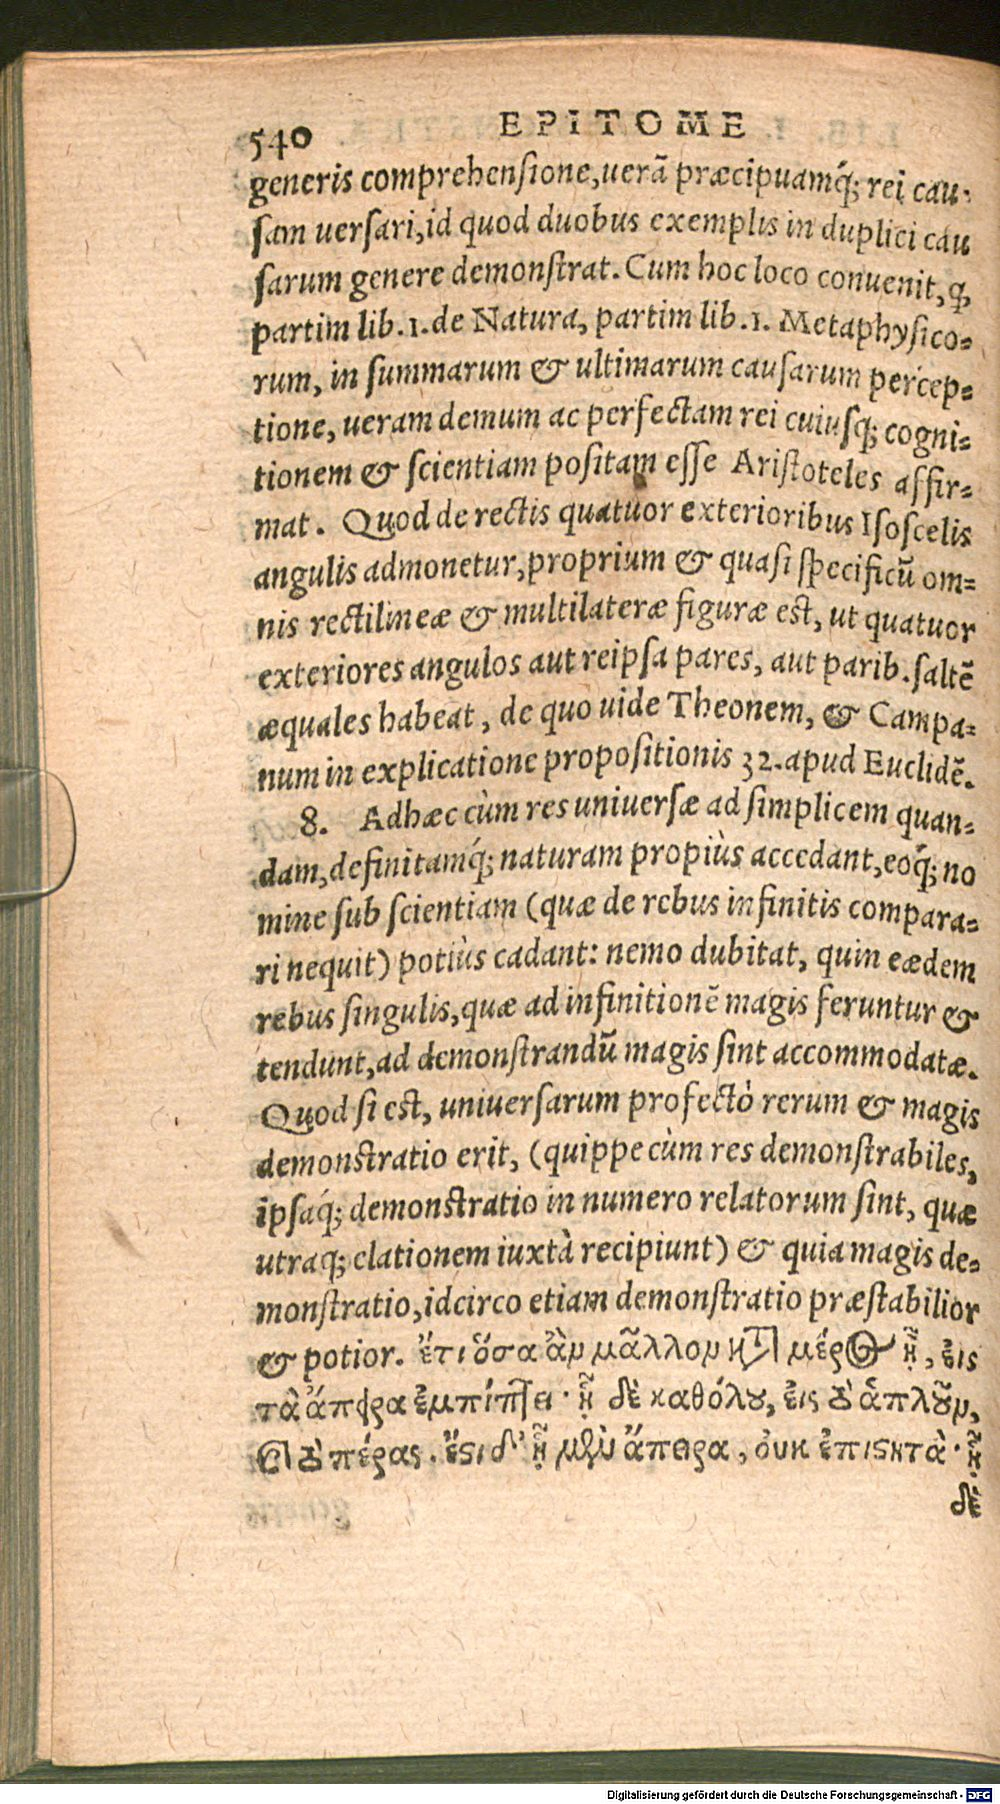 540 EPITOME
generis comprehensione, uerã præcipuamq́; rei cau-
sam uersari, id quod duobus exemplis in duplici cau
sarum genere demonstrat. Cum hoc loco conuenit, q̃
partim lib. 1. de Natura, partim lib. 1. Metaphysico-
rum, in summarum & ultimarum causarum percep-
tione, ueram demum ac perfectam rei cuiusq; cogni-
tionem & scientiam positam esse Aristoteles affir-
mat. Quod de rectis quatuor exterioribus Isoscelis
angulis admonetur, proprium & quasi specificũ om-
nis rectilineæ & multilateræ figuræ est, ut quatuor
exteriores angulos aut reipsa pares, aut parib. saltẽ
æquales habeat, de quo uide Theonem, & Campa-
num in explicatione propositionis 32. apud Euclidẽ.
8. Adhæc cùm res uniuersæ ad simplicem quan-
dam, definitamq́; naturam propiùs accedant, eoq́; no
mine sub scientiam (quæ de rebus infinitis compara-
ri nequit) potiùs cadant: nemo dubitat, quin eædem
rebus singulis, quæ ad infinitionẽ magis feruntur &
tendunt, ad demonstrandũ magis sint accommodatæ.
Quod si est, uniuersarum profectò rerum & magis
demonstratio erit, (quippe cùm res demonstrabiles,
ipsaq́; demonstratio in numero relatorum sint, quæ
utraq́; elationem iuxtà recipiunt) & quia magis de-
monstratio, idcirco etiam demonstratio præstabilior
& potior. ἔτι ὅσα ἂν μᾶλλον κατὰ μέρος ᾖ, εἰς
τὰ ἄπειρα ἐμπίπτει· ἡ δὲ καθόλου, εἰς τὸ ἁπλοῦν,
καὶ τὸ πέρας. ἔστι δ' ᾗ μὲν ἄπειρα, οὐκ ἐπιστητὰ· ᾗ
δὲ
Digitalisierung gefördert durch die Deutsche Forschungsgemeinschaft - DFG